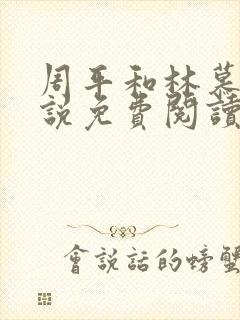 周平和林慕
說免費閱讀
會說話的螃蟹